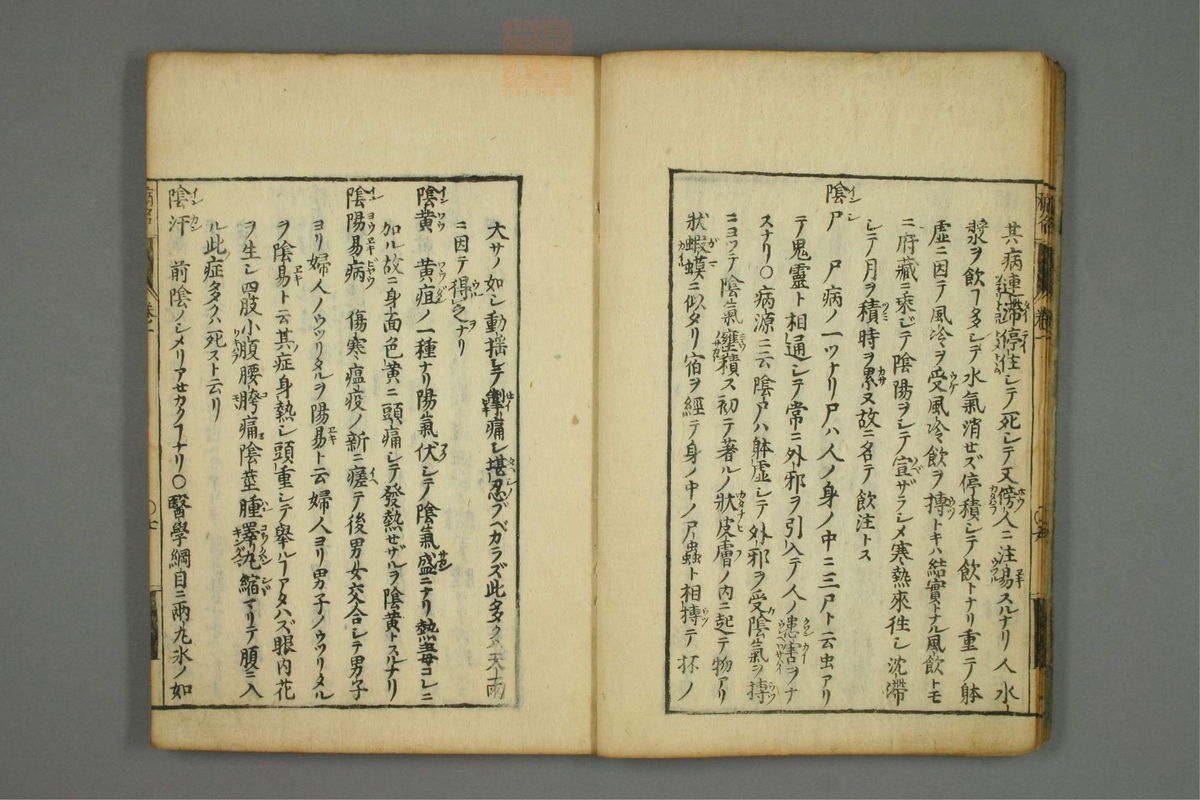 其病連滞停住シテ死シテ又傍人ニ注易スルナリ人水
漿ヲ飲ヿ多シテ水氣消セズ停積シテ飲トナリ重テ躰
虚ニ因テ風冷ヲ受風冷飲ヲ搏トキハ結實トナル風飲トモ
ニ府藏ニ乘ジテ陰陽ヲシテ宣ザラシメ寒熱來徃シ沈滞
シテ月ヲ積時ヲ累又故ニ名テ飲注トス
陰尸 尸病ノ一ツナリ尸ハ人ノ身ノ中ニ三尸ト云虫アリ
テ鬼靈ト相通シテ常ニ外邪ヲ引入テ人ノ患害ヲナ
スナリ〇病源ニ云陰尸ハ躰虚シテ外邪ヲ受陰氣ヲ搏
ニヨツテ陰氣壅積ス初テ著ルノ狀皮膚ノ内ニ起テ物アリ
狀蝦蟇ニ似タリ宿ヲ經テ身ノ中ノ尸蟲ト相摶テ杯ノ
大サノ如シ動揺シテ掣痛シ堪忍ブベカラズ此多クハ天雨
ニ因テ得之ナリ
陰黄 黄疸ノ一種ナリ陽氣伏シテ陰氣盛ニナリ熱毒コレニ
加ル故ニ身面色黄ニ頭痛シテ發熱せザルヲ陰黄トスルナリ
陰陽易病 傷寒瘟疫ノ新ニ瘥テ後男女交合シテ男子
ヨリ婦人ノウツリタルヲ陽易ト云婦人ヨリ男子ノウツリタル
ヲ陰易ト云其症身熱シ頭重シテ舉ルヿアタハズ眼内花
ヲ生シ四肢小腹腰胯痛陰莖腫睪丸縮マリテ腹ニ入
ル此症多クハ死スト云リ
陰汗 前陰ノシメリアせカクヿナリ〇醫學綱目ニ兩丸氷ノ如